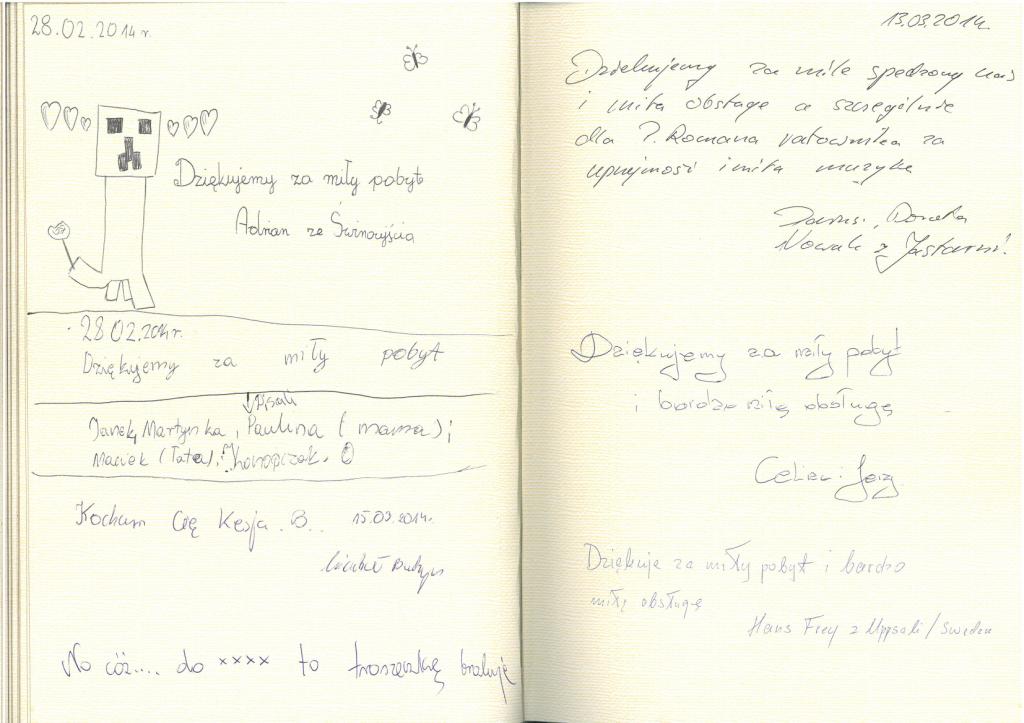 28.02.2014 r.
Dziękujemy za miły pobyt
Adrian ze Świnoujścia
28.02.2014r.
Dziękujemy za miły pobyt
Pisali
Janek, Martynka, Paulina (mama);
Maciek (Tata);
Kocham Cię Kesja. B.. 15.03.2014r.
No cóż.... do xxxx to troszeczkę brakuje
13.03.2014.
Dziekujemy za miłe spędzony czas
i miła obsługe a szczególnie
dla P. Romana ratownika za
uprzejmość i miła muzykę
Nowak z Jastarni.
Dziękujemy za miły pobyt
i bardzo miłą obsługę
Dziękuje za miły pobyt i bardzo
miłą obsługę
Hans Frey z Uppsali / Sweden